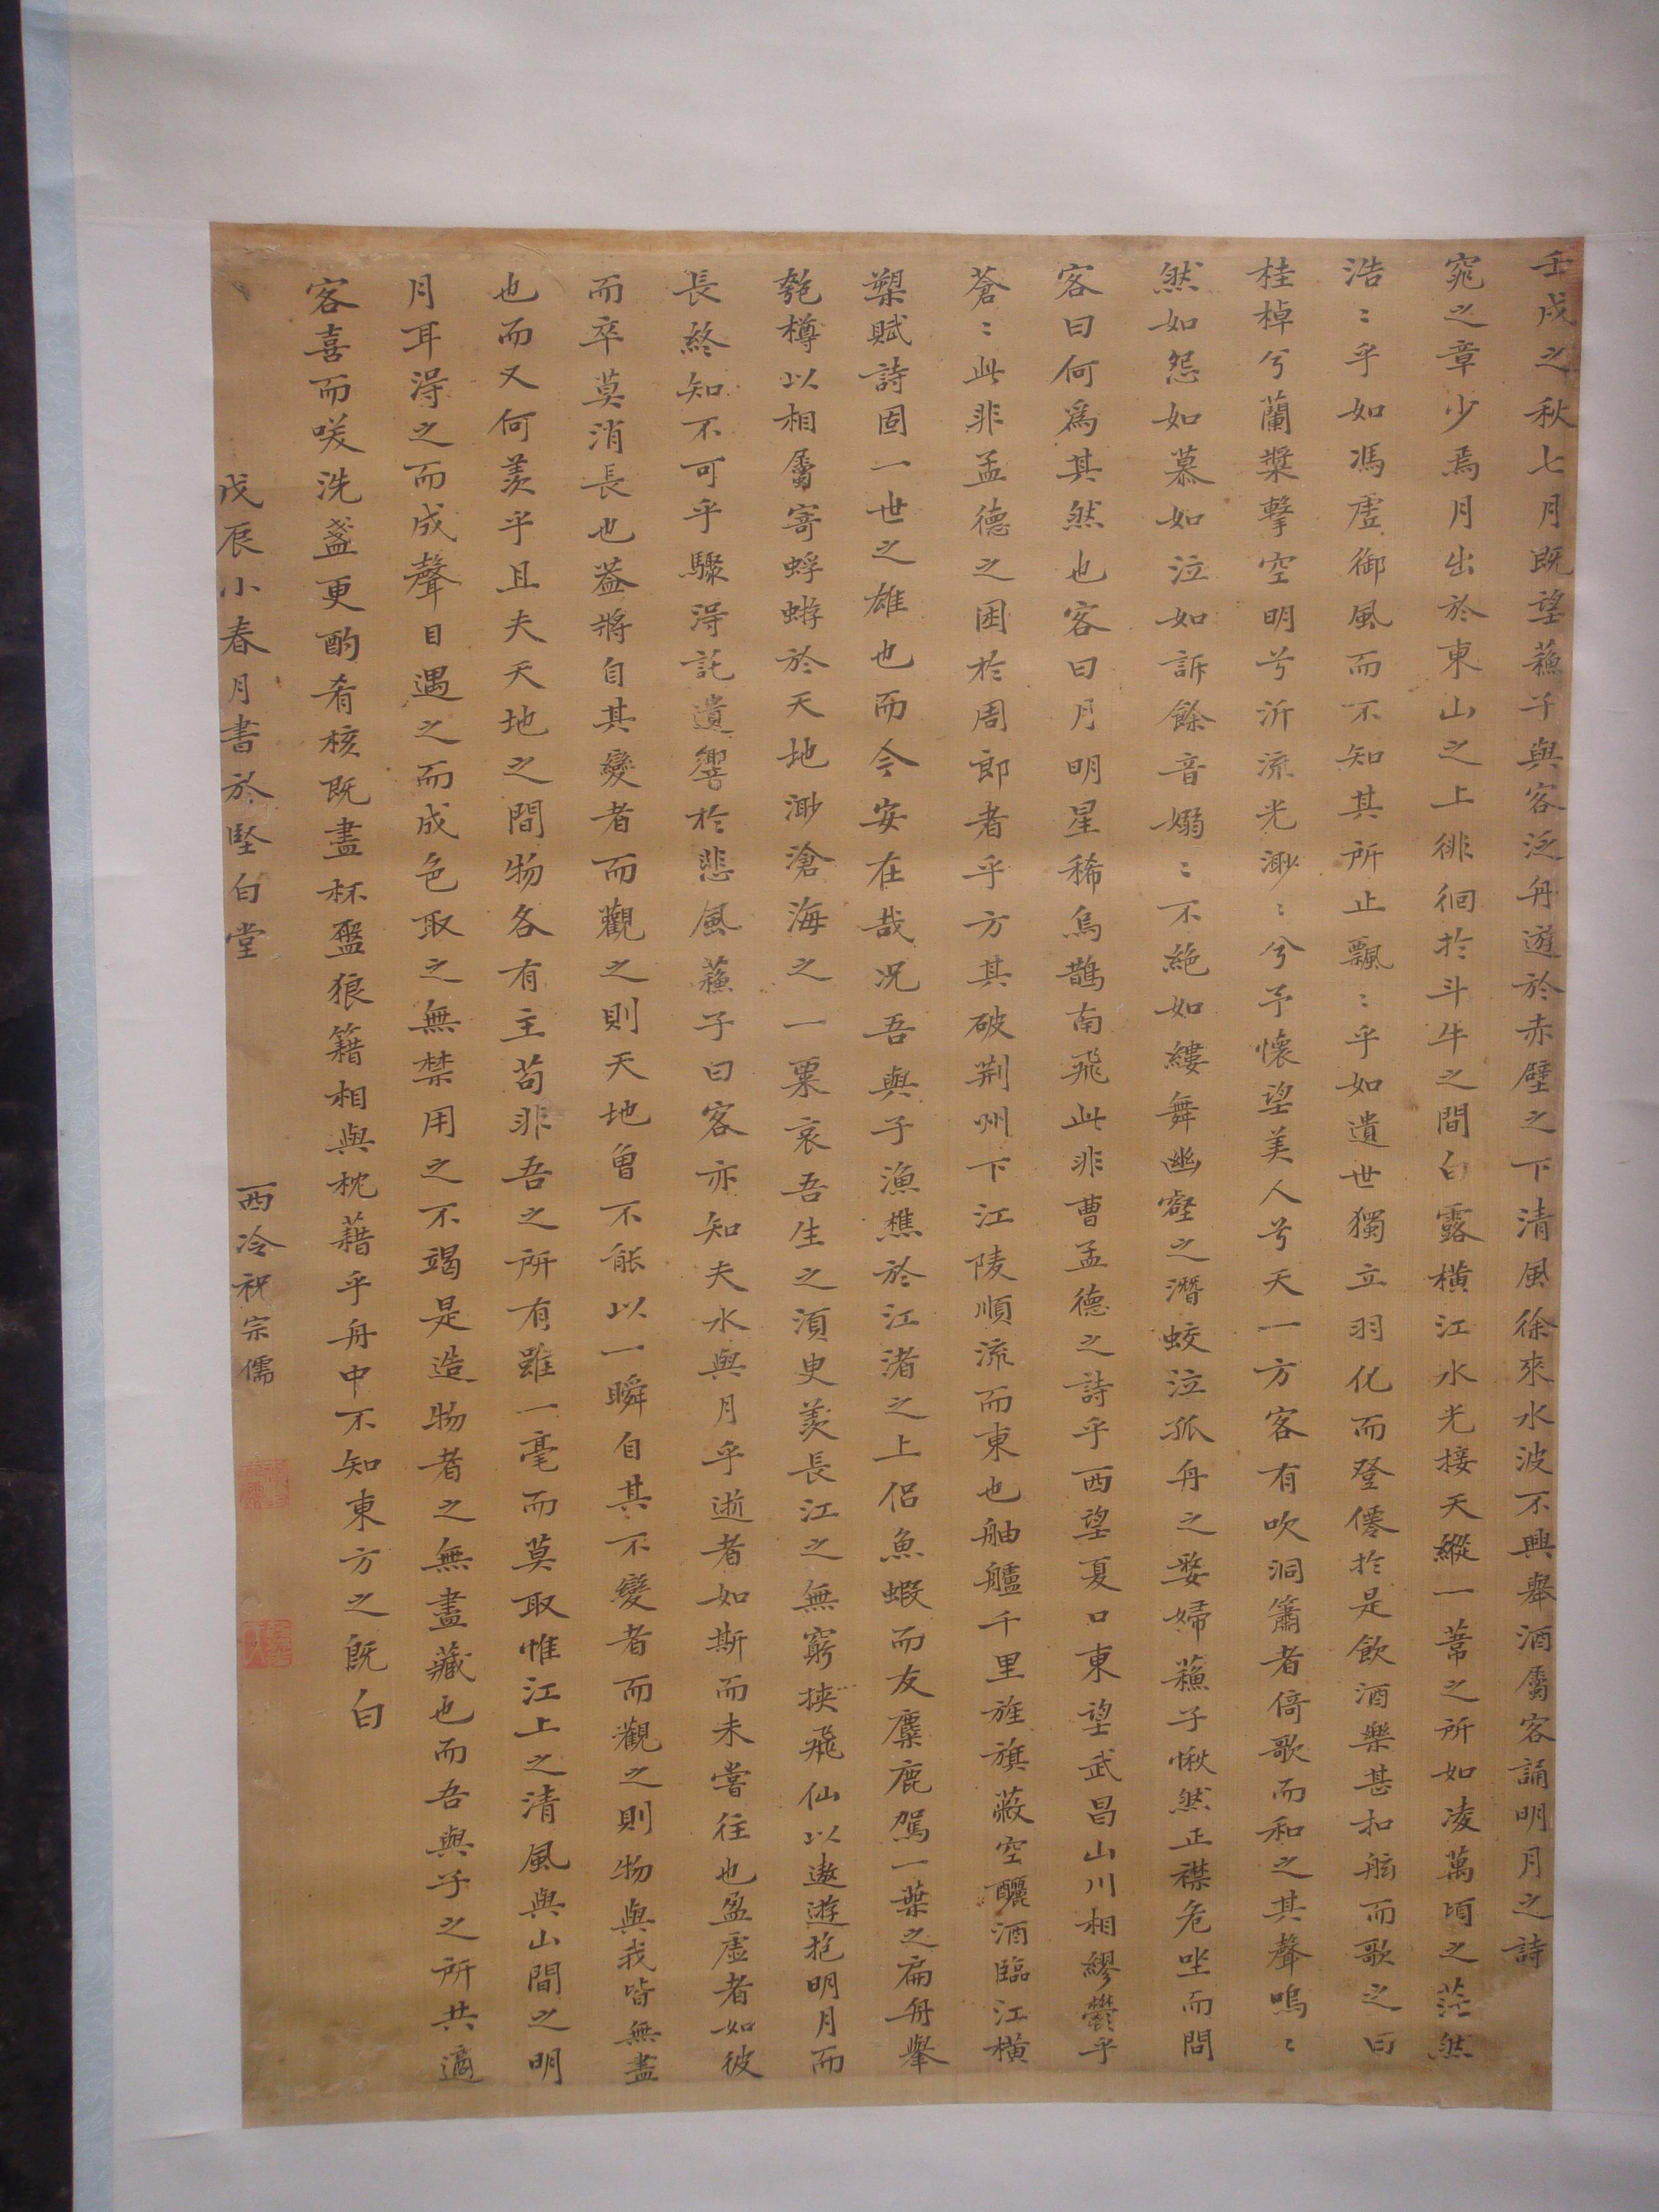 壬戌之秋七月既望蘓子與客泛舟遊於赤壁之下清風徐來水波不興舉酒屬客誦明月之詩
窕之章少焉月出於東山之上徘徊於斗牛之間白露橫江水光接天縱一葦之所如凌萬頃之茫然
浩〻乎如馮虛御風而不知其所止飄〻乎如遺世獨立羽化而登僊於是飲酒樂甚扣舷而歌之曰
桂棹兮蘭槳擊空明兮泝流光渺〻兮予懷望美人兮天一方客有吹洞簫者倚歌而和之其聲嗚〻
然如怨如慕如泣如訴餘音嫋〻不絕如縷舞幽壑之潛蛟泣孤舟之嫠婦蘓子愀然正襟危坐而問
客曰何為其然也客曰月明星稀烏鵲南飛此非曹孟德之詩乎西望夏口東望武昌山川相繆鬱乎
蒼〻此非孟德之困於周郎者乎方其破荊州下江陵順流而東也舳艫千里旌旗蔽空釃酒臨江橫
槊賦詩固一世之雄也而今安在哉況吾與子漁樵於江渚之上侶魚蝦而友麋鹿駕一葉之扁舟舉
匏樽以相屬寄蜉蝣於天地渺滄海之一粟哀吾生之須臾羨長江之無窮挾飛仙以遨遊抱明月而
長終知不可乎驟得託遺響於悲風蘓子曰客亦知夫水與月乎逝者如斯而未嘗往也盈虛者如彼
而卒莫消長也蓋將自其變者而觀之則天地曾不能以一瞬自其不變者而觀之則物與我皆無盡
也而又何羨乎且夫天地之間物各有主苟非吾之所有雖一毫而莫取惟江上之清風與山間之明
月耳得之而成聲目遇之而成色取之無禁用之不竭是造物者之無盡藏也而吾與子之所共適
客喜而笑洗盞更酌肴核既盡杯盤狼籍相與枕藉乎舟中不知東方之既白
戊辰小春月書於堅白堂
西泠祝宗儒